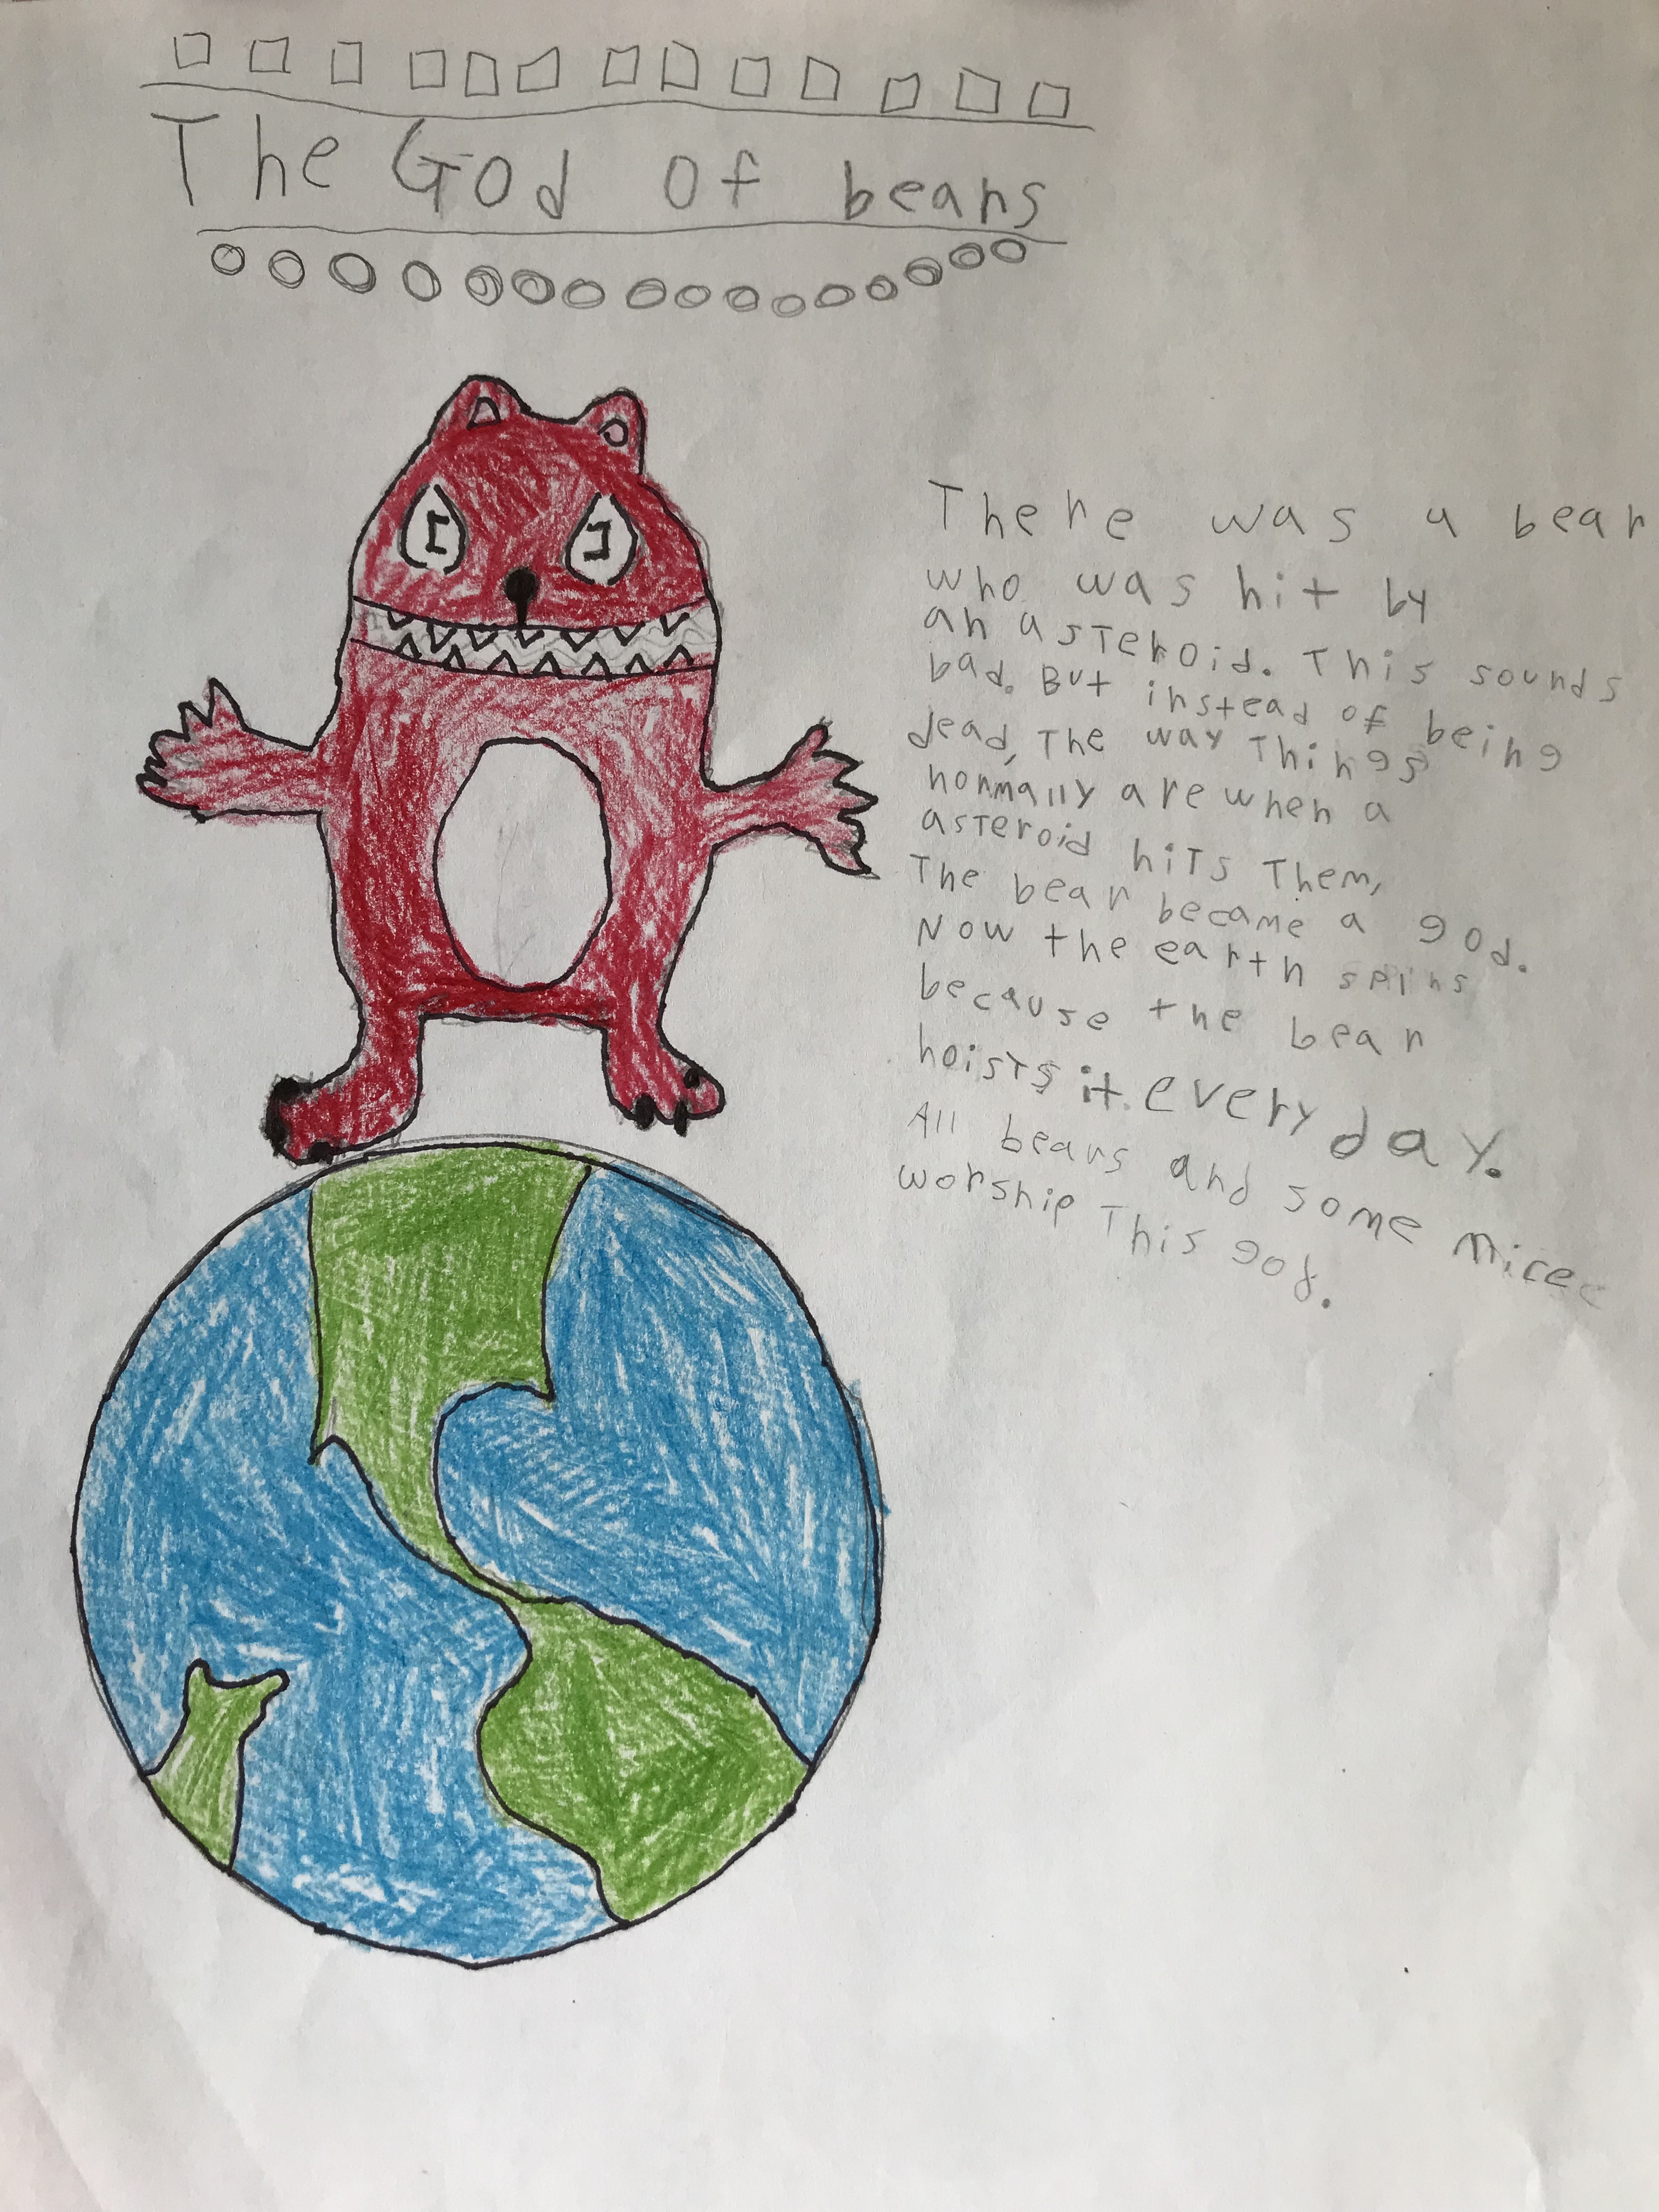 The God of bears
There was a bear
who was hit by
an asteroid. This sounds
bad. But instead of being
dead, The way Things
normally are when a
asteroid hits Them,
The bear became a god.
Now the earth spins
because the bear
hoists it every day.
All bears and some mice
worship This god.